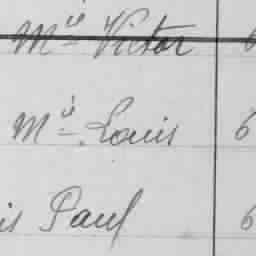 Mis Victor 6
Mis Louis 6
is Paul 6